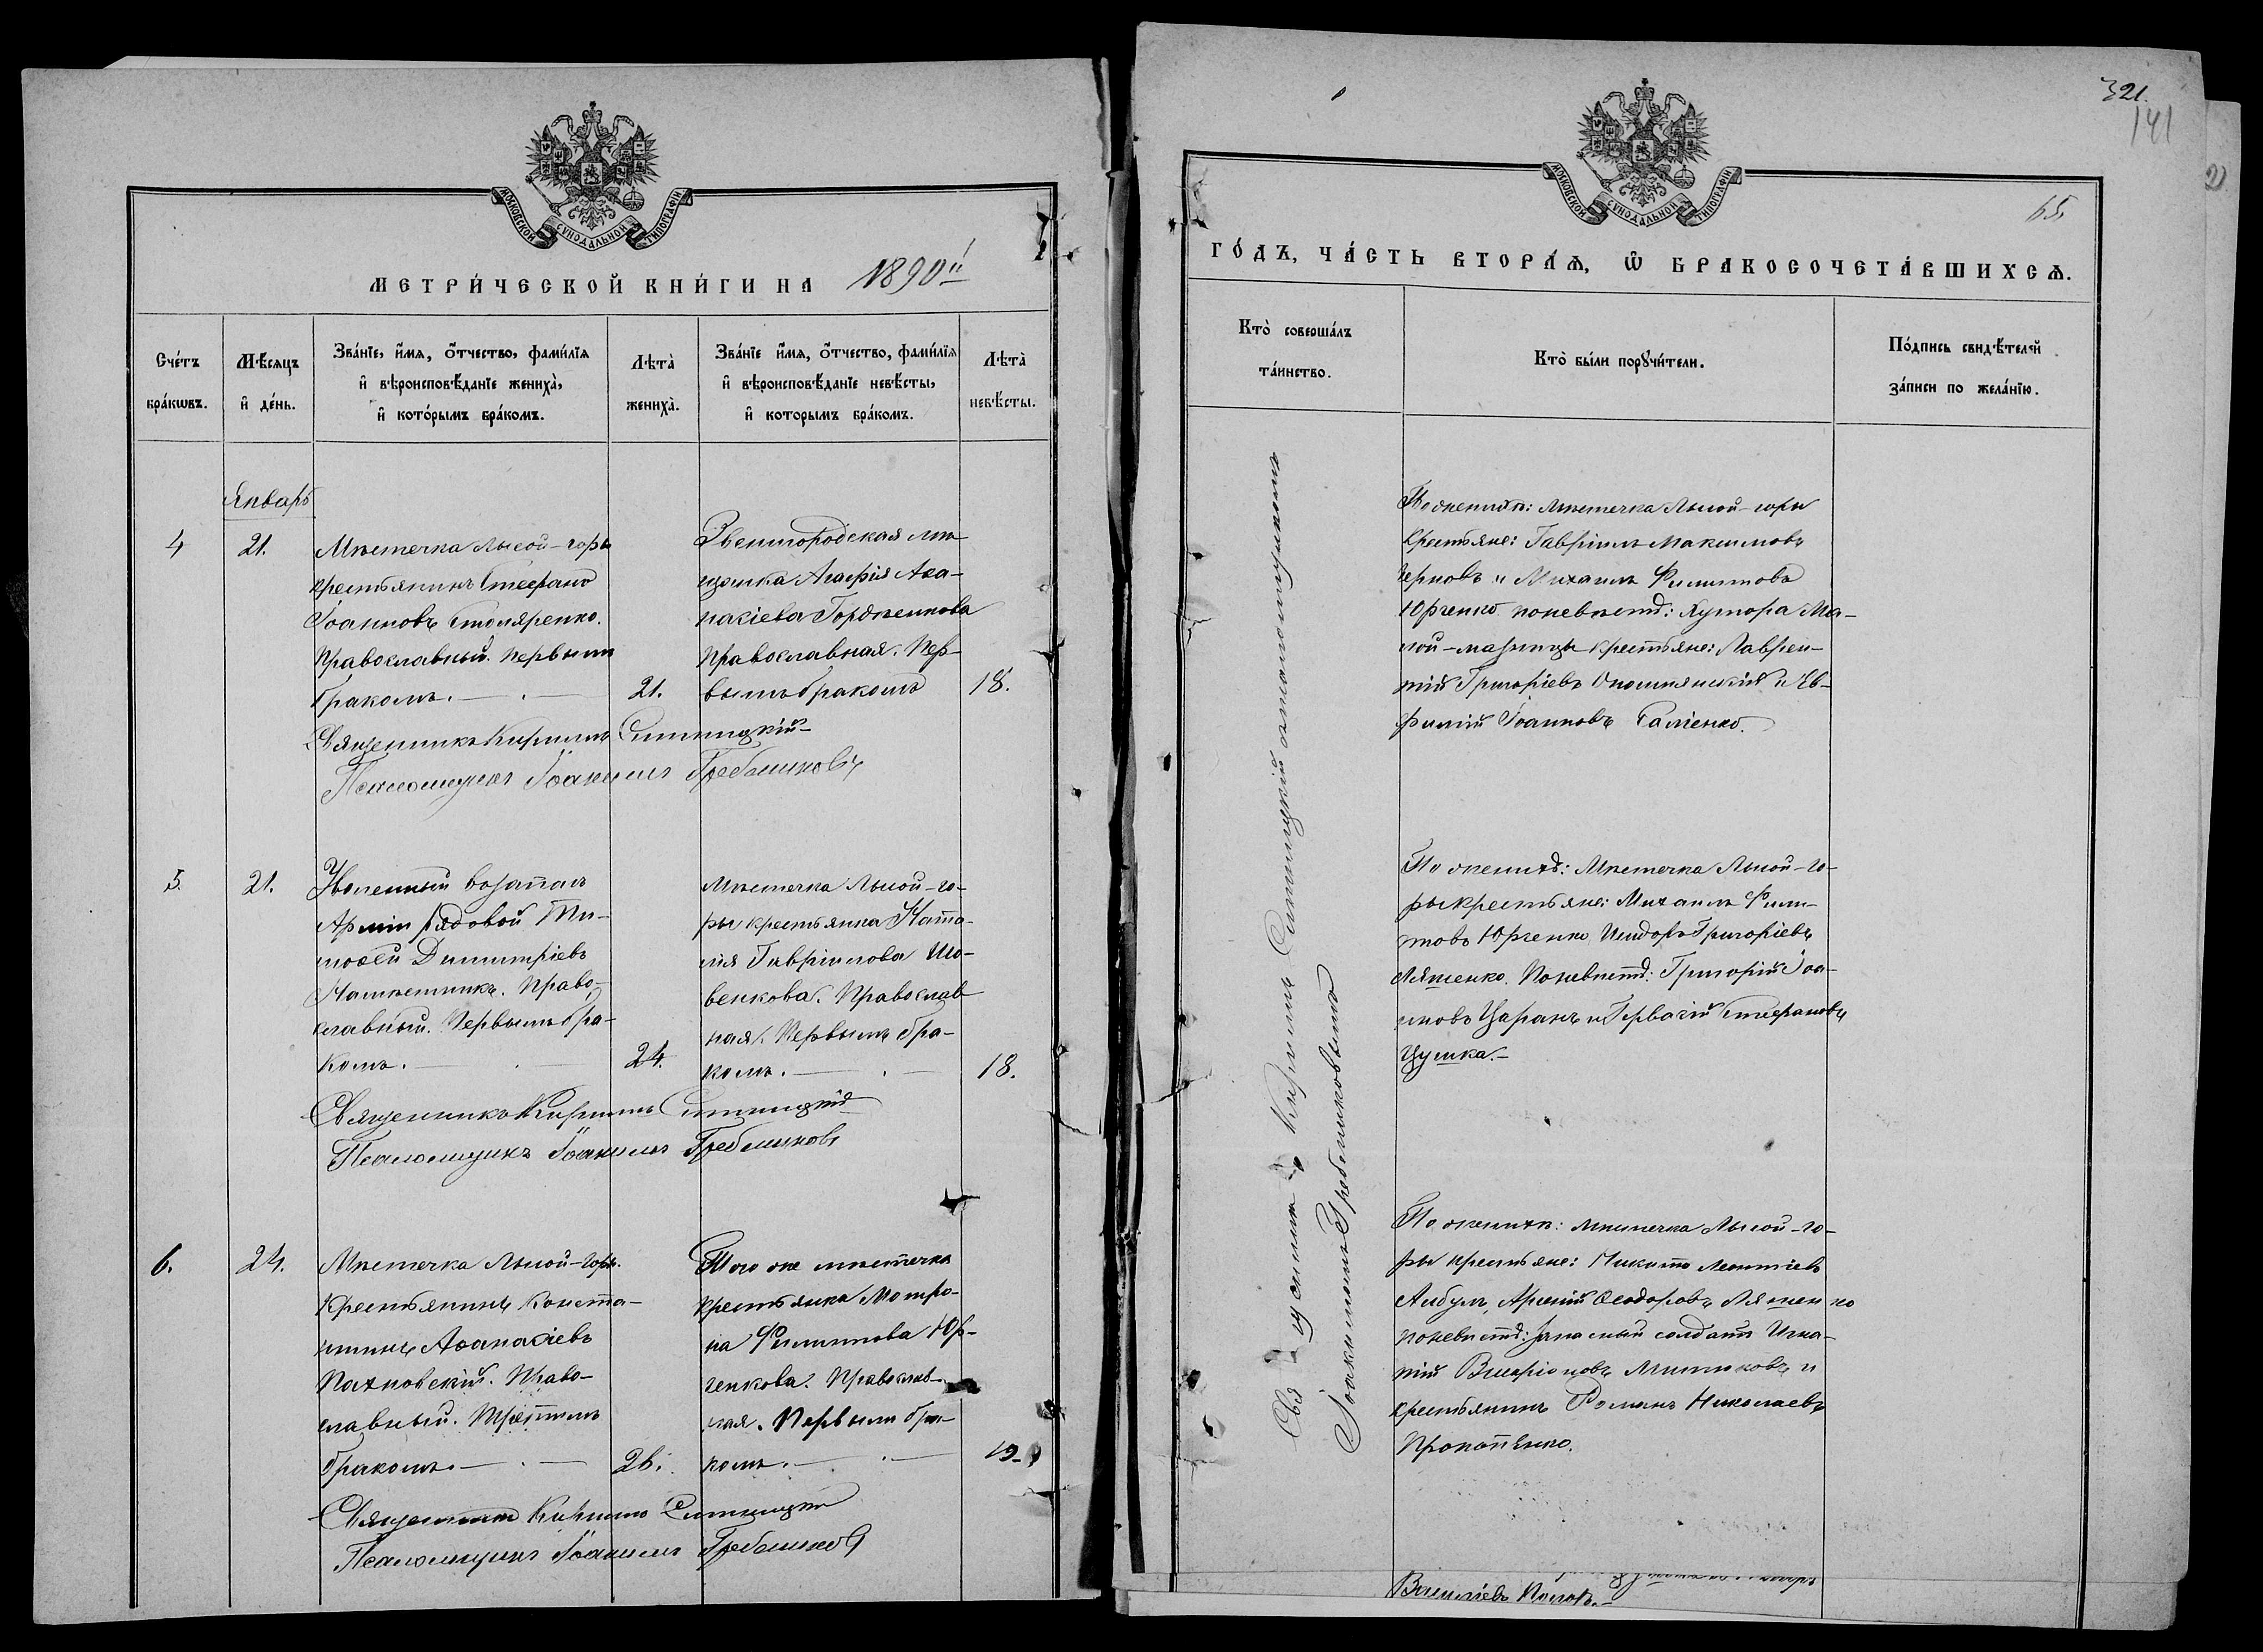 МОСКОВСКОЙ СУНОДАЛЬНОЙ ТИПОГРАФІИ
МЕТРИ́ЧЕСКОЙ КНИ́ГИ НА 1890й
Сче́тъ бра́кωвъ.
Мѣ́сяцъ и҆ де́нь.
Зва́нїе, и҆́мѧ, ѻ҆́тчество, фами́лїѧ и҆ вѣроисповѣ́данїе жениха̀, и҆ кото́рымъ бра́комъ.
Лѣта̀ жениха̀.
Зва́нїе и҆́мѧ, ѻ҆́тчество, фами́лїѧ и҆ вѣроисповѣ́данїе невѣ́сты, и҆ которымъ бра́комъ.
Лѣта̀ невѣ́сты.
Январь
4
21.
Мѣстечка Лысой-горы
крестьянинъ Стефанъ
Іоанновъ Столяренко.
Православный. Первымъ
бракомъ.
21.
Звенигородская мѣ-
щанка Агафія Аѳа-
насіева Гордѣенкова
Православная. Пер-
вымъ бракомъ
18.
Священникъ Кириллъ Ситницкій
Псаломщикъ Іоакимъ Гребениковъ
5.
21.
Уволенный въ запасъ
Арміи рядовой Ти-
моѳей Димитріевъ
Намѣстникъ. Право-
славный. Первымъ бра-
комъ.
24.
Мѣстечка Лысой-го-
ры крестьянка Ната-
лія Гавріилова Шо-
венкова. Православ
ная. Первымъ бра-
комъ.
18.
Священникъ Кириллъ Ситницкій
Псаломщикъ Іоакимъ Гребениковъ
6.
24.
Мѣстечка Лысой-горы.
Крестьянинъ Конста-
нтинъ Аѳанасіевъ
Пахновскій. Право-
славный. Третьимъ
бракомъ.
26.
Того же мѣстечка
крестьянка Матро-
на Филиппова Юр-
ченкова. Православ-
ная. Первымъ бра-
комъ.
19.
Священникъ Кириллъ Ситницкій
Псаломщикъ Іоакимъ Гребениковъ
321.
141
65.
МОСКОВСКОЙ СУНОДАЛЬНОЙ ТИПОГРАФІИ
ГО́ДЪ, ЧА́СТЬ ВТОРА́Ѧ, Ѽ БРАКОСОЧЕТА́ВШИХСѦ.
Кто̀ соверша́лъ та́инство.
Кто̀ бы́ли порꙋчи́тели.
По́дпись свидѣ́телей за́писи по жела́нїю.
Кириллъ Ситницкій съ псаломщикомъ
Іоакимомъ Гребениковымъ
По женихѣ: мѣстечка Лысой-горы
крестьяне: Гавріилъ Максимовъ
Черновъ и Михаилъ Филипповъ
Юрченко по невѣстѣ: хутора Ма-
лой-мазницы крестьяне: Лаврен-
тій Григоріевъ Опошнянскій и Ев-
фимій Іоанновъ Галіенко.
По женихѣ: Мѣстечка Лысой-го-
ры крестьяне: Михаилъ Филип-
повъ Юрченко Исидоръ Григоріевъ
Ляшенко. По невѣстѣ: Григорій Іоа-
нновъ Царанъ и Гервасій Стефановъ
Цушка.
По женихѣ: мѣстечка Лысой-го-
ры крестьяне: Никита Леонтіевъ
Албулъ, Арсеній Ѳеодоровъ Ляшенко
по невѣстѣ: запасный солдатъ Игна-
тій Виссаріоновъ Мишиковъ и
крестьянинъ Романъ Николаевъ
Прокопенко.
Васильевъ